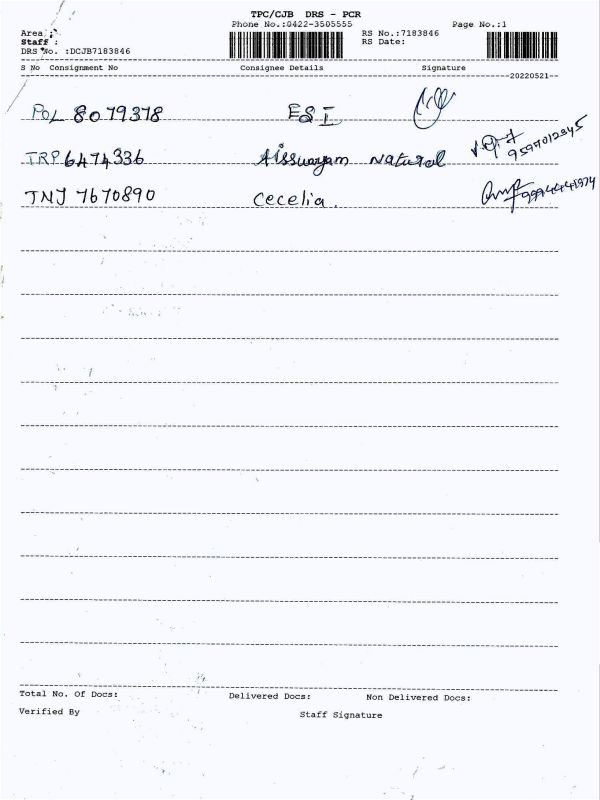 TPC/CJB DRS - PCR
Phone No.:0422-3505555 Page No.:1
Area : RS No.:7183846
Staff : RS Date:
DRS No. :DCJB7183846
S No Consignment No Consignee Details Signature
20220521
POL 8079378 ESI
TRP 6474336 Aisswaryam Natural 9597012345
TNJ 7670890 Cecelia.
Total No. Of Docs: Delivered Docs: Non Delivered Docs:
Verified By Staff Signature